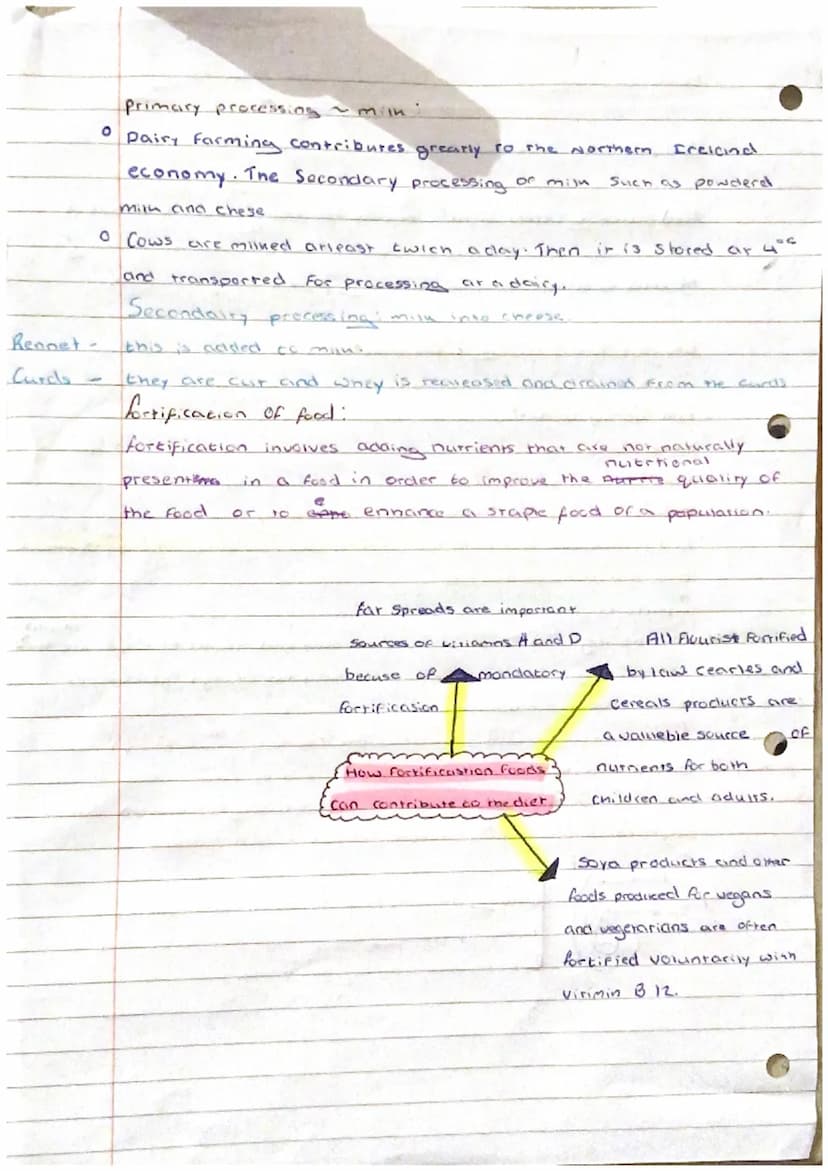 primary processing ~ milk:
o Dairy Farming contributes greatly to the Northern Ireland
economy. The Secondary processing of milk such as powderd
milk and chese
o Cows are milked atleast twich a day. Then it is stored at 4°c
and transported for processing at a dairy.
Secondairy processing: milk into cheese
Rennet - this is added to milk.
Curds - they are cut and whey is realeased and drained from the curds
fortification of food:
fortification involves adding nutrients that are not naturally
present in a food in order to improve the nutritional quality of
the food or to enhance a staple food of a population.
fat Spreads are important
sources of vitiamins A and D
becuse of mandatory
fortificasion
All flour is fortified
by law cearles and
cereals products are
a valueble source of
nutrients for both
children and adults.
How fortification foods
can contribute to the diet
Soya products and other
foods produced for vegans
and vegetarians are often
fortified voluntarily with
vitimin B 12.